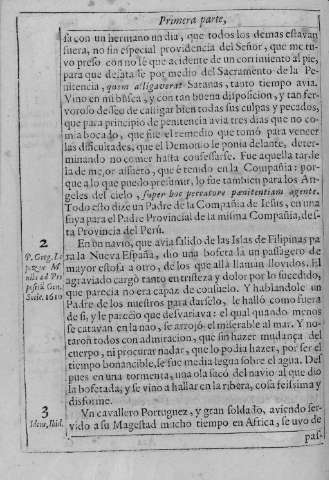 Primera parte,
sa con un hermano un dia, que todos los demas estavan
fuera, no sin especial providencia del Señor, que me tu-
vo preso con no se que accidente de un corrimiento al pie,
para que desatasse por medio del Sacramento de la Pe-
nitencia, quem alligaverat Satanas, tanto tiempo avia.
Vino en mi busca, y con tan buena disposicion, y tan fer-
voroso deseo de castigar bien todas sus culpas y pecados,
que para principio de penitencia avia tres dias que no co-
mia bocado, que fue el remedio que tomó para vencer
las dificultades, que el Demonio le ponia delante, deter-
minando no comer hasta confessarse. Fue aquella tarde
la de mejor assueto, que é tenido en la Compañia: por-
que a lo que puedo presumir, lo fue tambien para los An-
geles del cielo, super hoc peccatore pænitentiam agente.
Todo esto dize un Padre de la Compañia de Iesus, en una
suya para el Padre Provincial de la misma Compañia, des-
ta Provincia del Perù.
2
En un navio, que avia salido de las Islas de Filipinas pa
ra la Nueva España, dio una bofetada un passagero de
mayor estofa a otro, de los que allà llaman llovidos. El
agraviado cargò tanto en tristeza y dolor por lo sucedido,
que parecia no era capaz de consuelo. Y hablandole un
Padre de los nuestros para darselo, le hallò como fuera
de si, y le pareciò que desvariava: el qual quando menos
se catavan en la nao, se arrojò el miserable al mar. Y no-
taron todos con admiracion, que sin hazer mudança del
cuerpo, ni procurar nadar, que lo podia hazer, por ser el
tiempo bonancible, se fue media legua sobre el agua. Des
pues en una tormenta, una ola sacò del navio al que dio
la bofetada, y se vino a hallar en la ribera, cosa feissima y
disforme.
3
Idem, ibid.
Vn cavallero Portuguez, y gran soldado, aviendo ser-
vido a su Magestad mucho tiempo en Africa, se uvo de
pas-